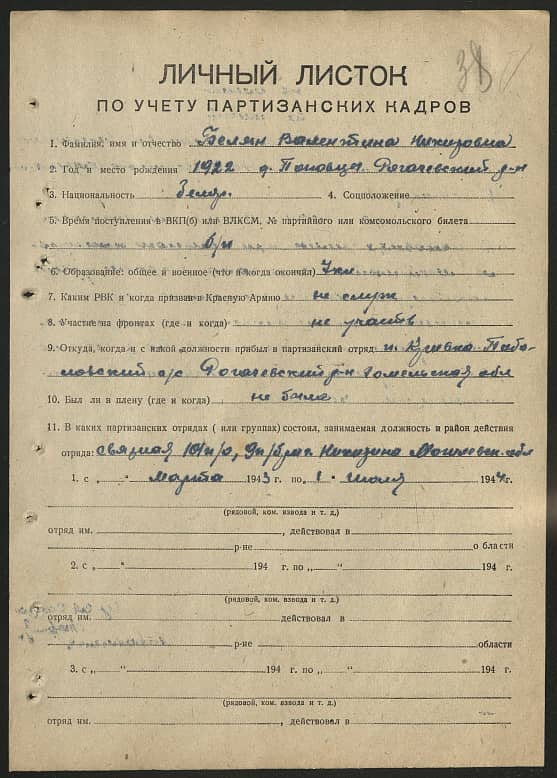 38
ЛИЧНЫЙ ЛИСТОК
ПО УЧЕТУ ПАРТИЗАНСКИХ КАДРОВ
1. Фамилия, имя и отчество Белян Валентина Никировна
2. Год и место рождения 1922 д. Поповцы Рогачевский р-н
3. Национальность белор. 4. Соцположение
5. Время поступления в ВКП(б) или ВЛКСМ, № партийного или комсомольского билета
б/п
6. Образование: общее и военное (что и когда окончил) 7 кл
7. Каким РВК и когда призван в Красную Армию не служ
8. Участие на фронтах (где и когда) не участв
9. Откуда, когда и с какой должности прибыл в партизанский отряд
с/с Рогачевский р-н Гомельская обл
10. Был ли в плену (где и когда) не была
11. В каких партизанских отрядах ( или группах) состоял, занимаемая должность и район действия
отряда: связная 10 п/о, 9 п/бриг. Никитина Могилевск. обл
1. с „ “ Марта 1943 г. по „ 1 “ июля 1944г.
(рядовой, ком. взвода и т. д.)
отряд им. , действовал в
р-не о бласти
2. с „ “ 194 г. по „ “ 194 г.
(рядовой, ком. взвода и т. д.)
отряд им. действовал в
р-не области
3. с „ “ 194 г по „ “ 194 г
(рядовой, ком. взвода и т. д.)
отряд им. , действовал в